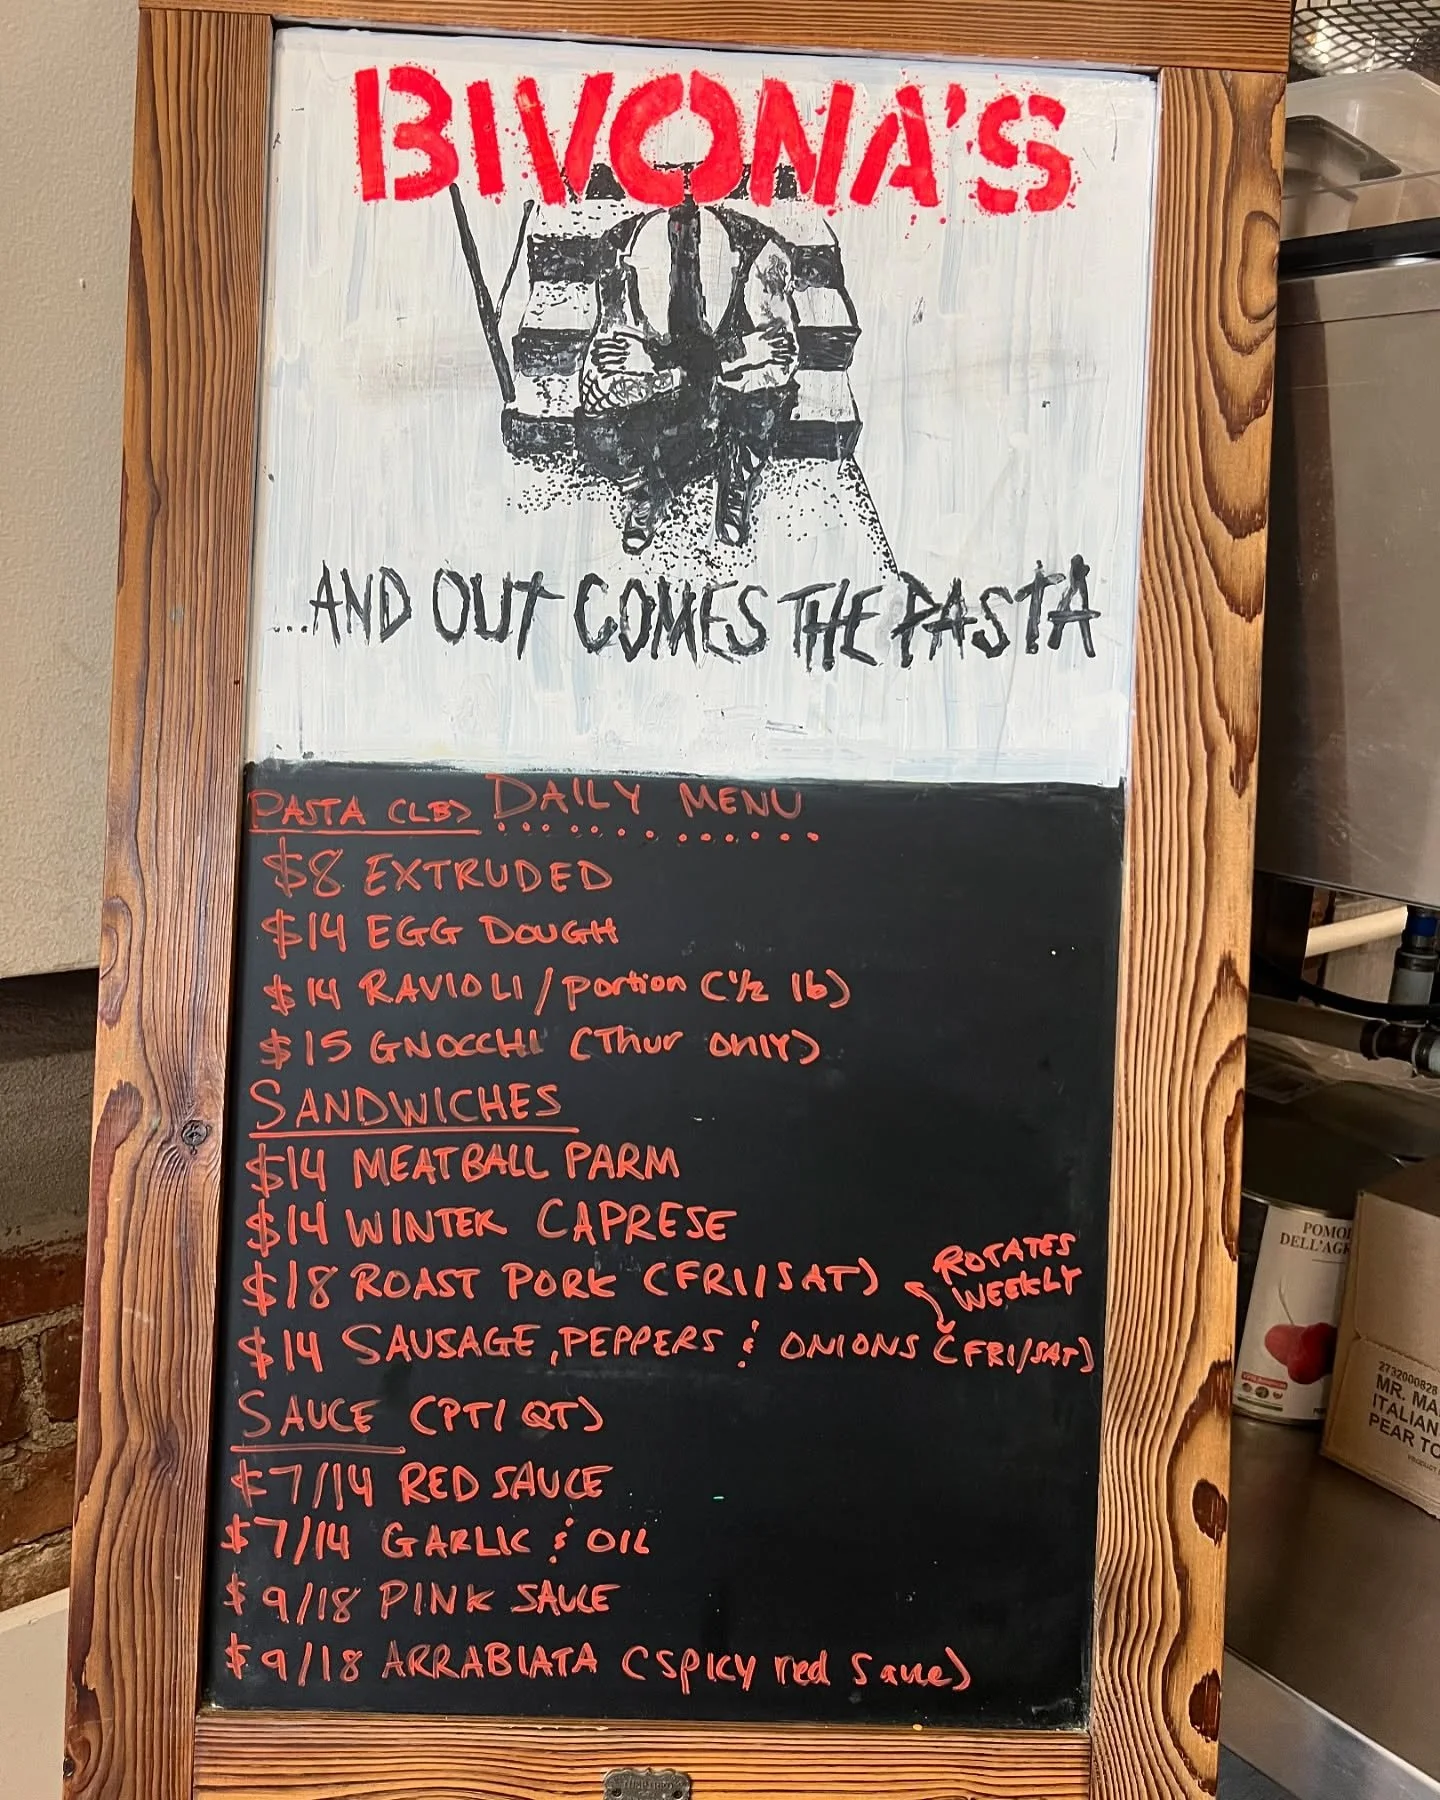 BIVONA'S
...AND OUT COMES THE PASTA
DAILY MENU
PASTA (LB)
$8 EXTRUDED
$14 EGG DOUGH
$14 RAVIOLI/portion (1/2 lb)
$15 GNOCCHI (Thur only)
SANDWICHES
$14 MEATBALL PARM
$14 WINTER CAPRESE
$18 ROAST PORK (FRI/SAT)
ROTATES
WEEKLY
$14 SAUSAGE, PEPPERS & ONIONS (FRI/SAT)
SAUCE (PT/QT)
$7/14 RED SAUCE
$7/14 GARLIC & OIL
$9/18 PINK SAUCE
$9/18 ARRABIATA (spicy red sauce)
POMO
DELL'AG
2732000828
MR. MA
ITALIAN
PEAR TO